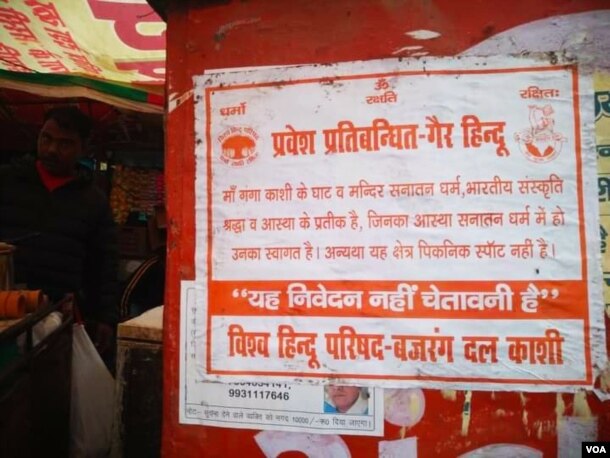 ॐ
धर्मो रक्षति रक्षितः
प्रवेश प्रतिबन्धित-गैर हिन्दू
माँ गंगा काशी के घाट व मन्दिर सनातन धर्म,भारतीय संस्कृति
श्रद्धा व आस्था के प्रतीक है, जिनका आस्था सनातन धर्म में हो
उनका स्वागत है। अन्यथा यह क्षेत्र पिकनिक स्पॉट नहीं है।
“यह निवेदन नहीं चेतावनी है”
विश्व हिन्दू परिषद-बजरंग दल काशी
9931117646
नोट:- सूचना देने वाले व्यक्ति को नगद 10000/-रू0 दिया जाएगा।
VOA